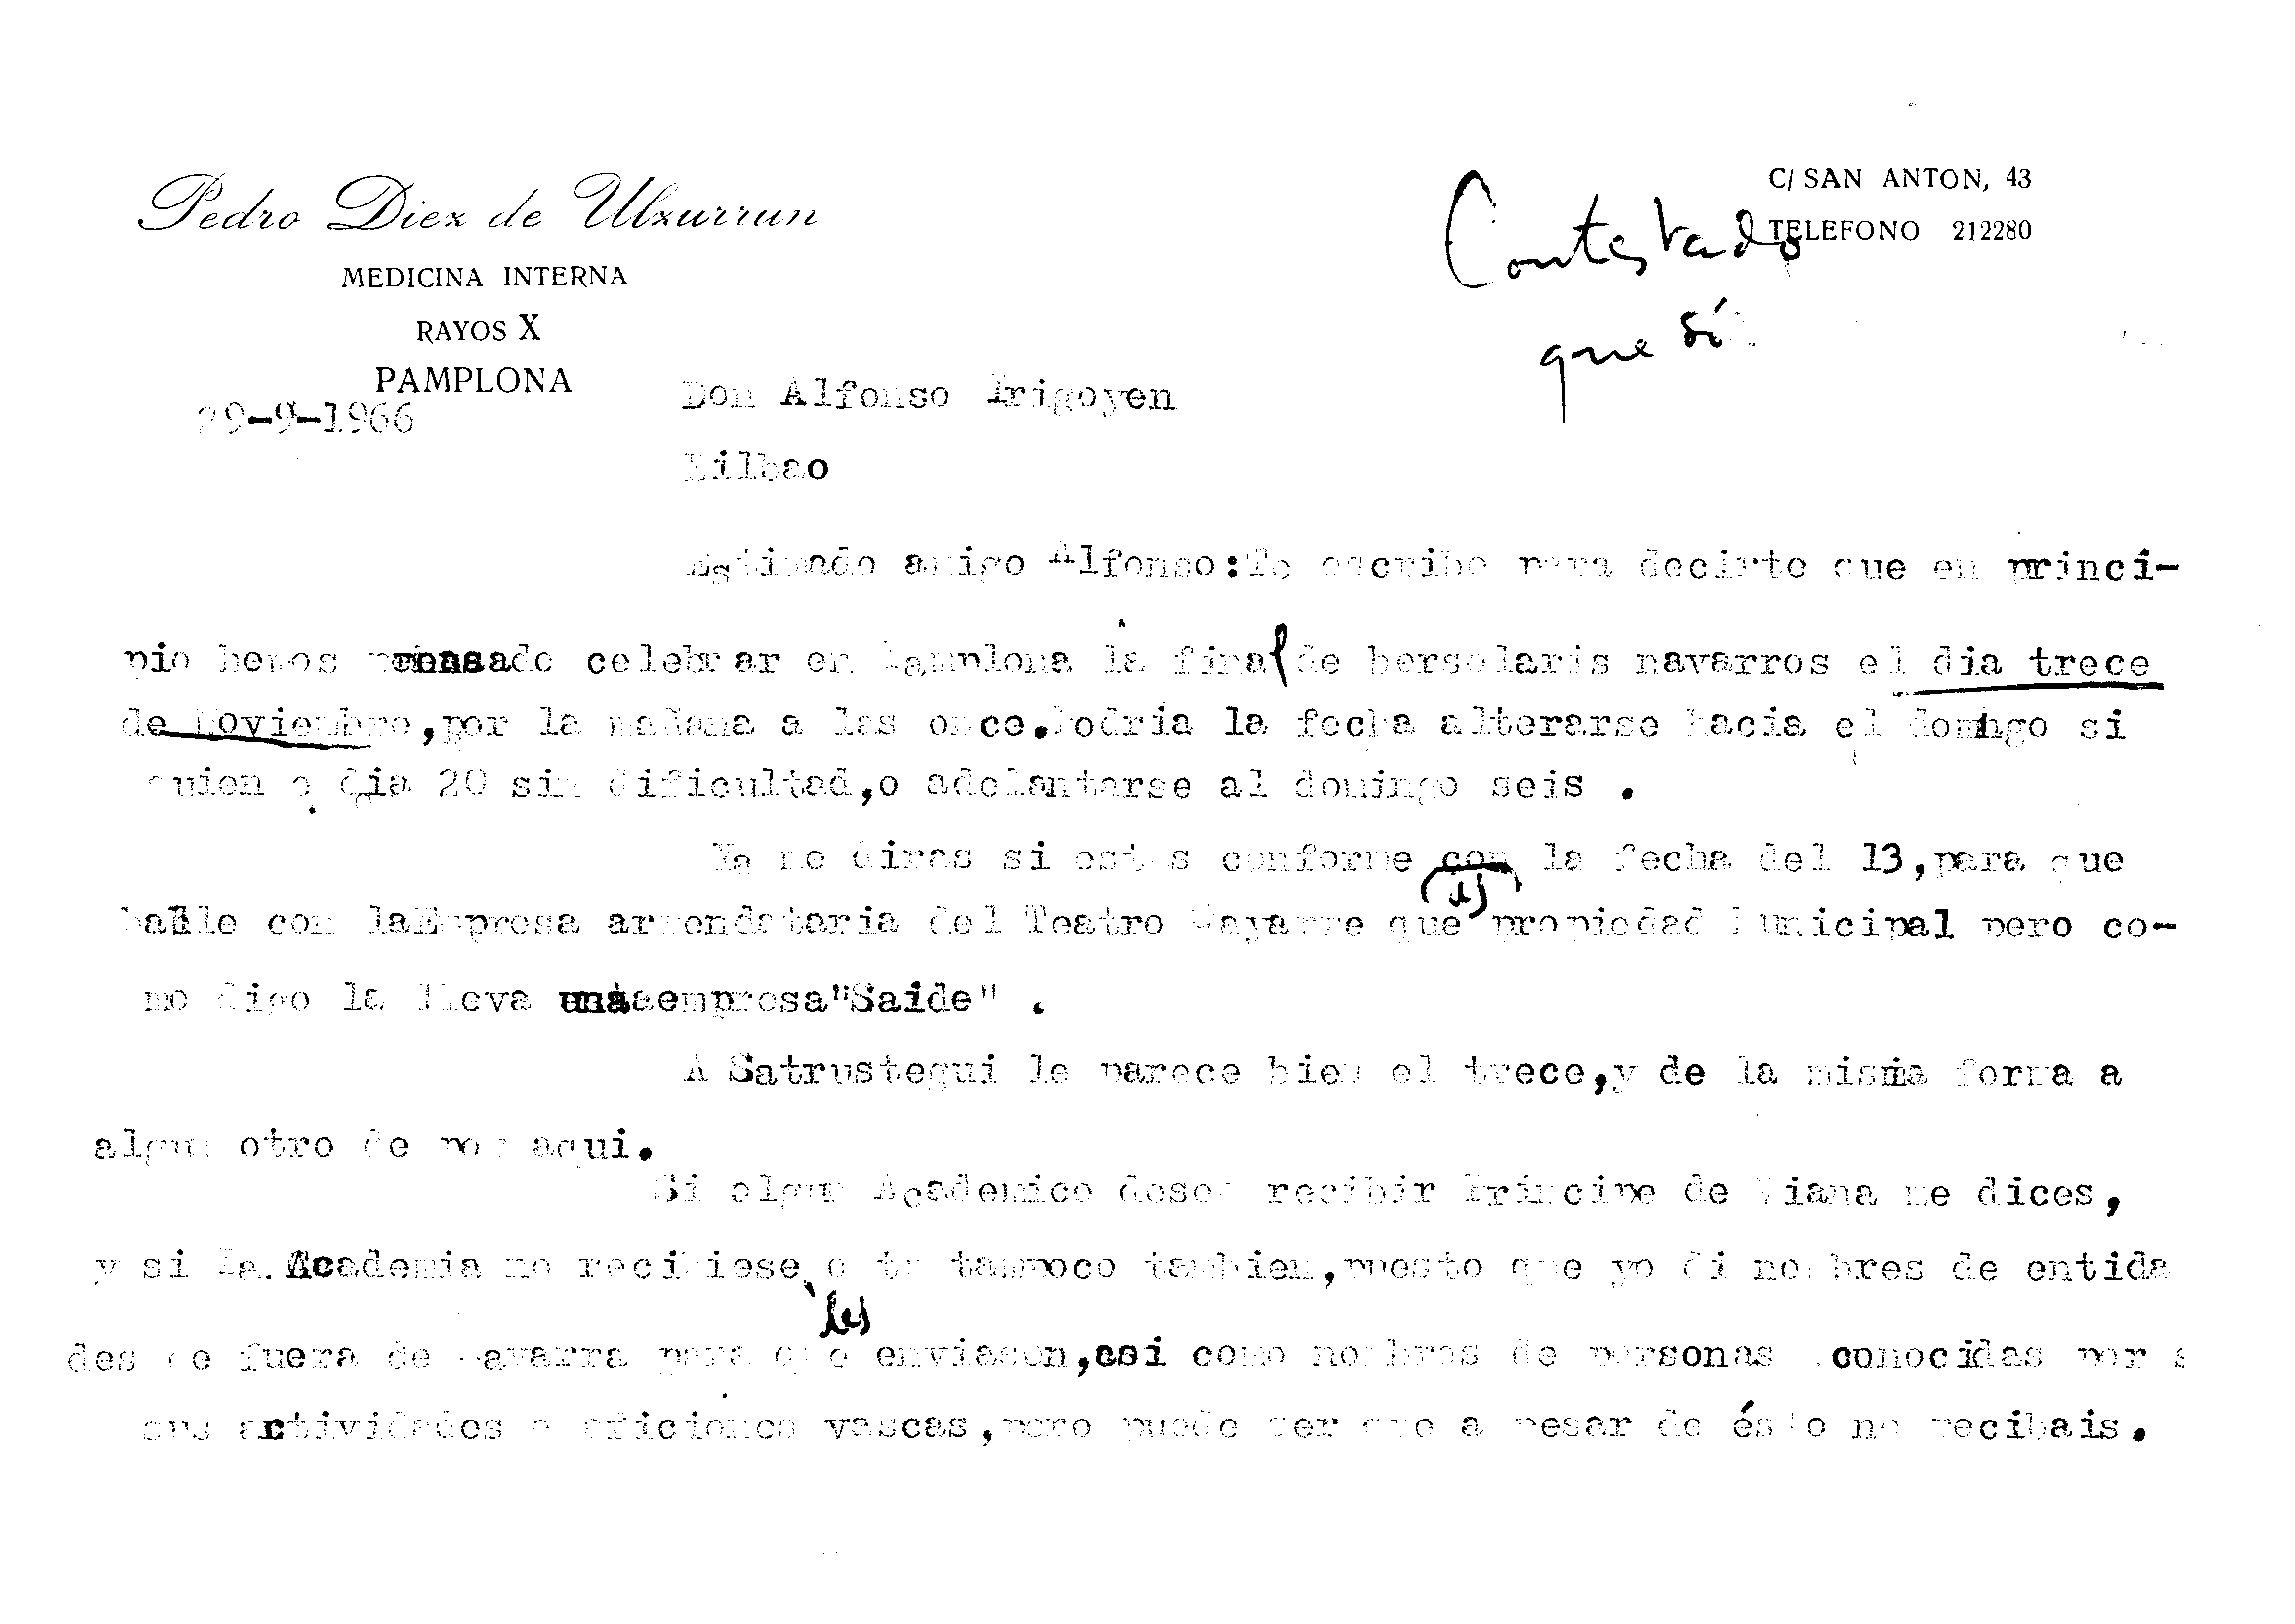 Pedro Diez de Ulzurrun
MEDICINA INTERNA
RAYOS X
PAMPLONA
C/ SAN ANTON, 43
TELEFONO 212280
Contestado
que sí
29-9-1966
Don Alfonso Irigoyen
Bilbao
Estimado amigo Alfonso:Te escribo para decirte que en princi-
pio hemos pensado celebrar en Pamplona la final de bersolaris navarros el dia trece
de Noviembre,por la mañana a las once.Podria la fecha alterarse hacia el domingo si
guiente dia 20 sin dificultad,o adelantarse al domingo seis .
Ya me diras si estas conforme con la fecha del 13,para que
hable con la Empresa arrendataria del Teatro Gayarre que es propiedad Municipal pero co-
mo digo la lleva una empresa"Saide" .
A Satrustegui le parece bien el trece,y de la misma forma a
algun otro de por aqui.
Si algun Academico desea recibir Principe de Viana me dices,
y si la Academia no recibiese o tu tampoco tambien,puesto que yo di nombres de entida
des de fuera de Navarra para que les enviasen,asi como nombres de personas conocidas por s
sus actividades o aficiones vascas,pero puede ser que a pesar de ésto no recibais.